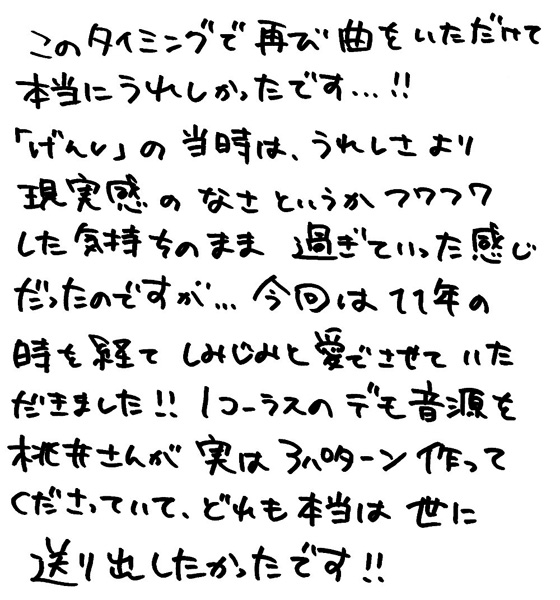 このタイミングで再び曲をいただけて
本当にうれしかったです…!!
「げんし」の当時は、うれしさより
現実感のなさというかフワフワ
した気持ちのまま過ぎていった感じ
だったのですが…今回は11年の
時を経てしみじみと愛でさせていた
だきました!!1コーラスのデモ音源を
桃井さんが実は3パターン作って
くださっていて、どれも本当は世に
送り出したかったです!!